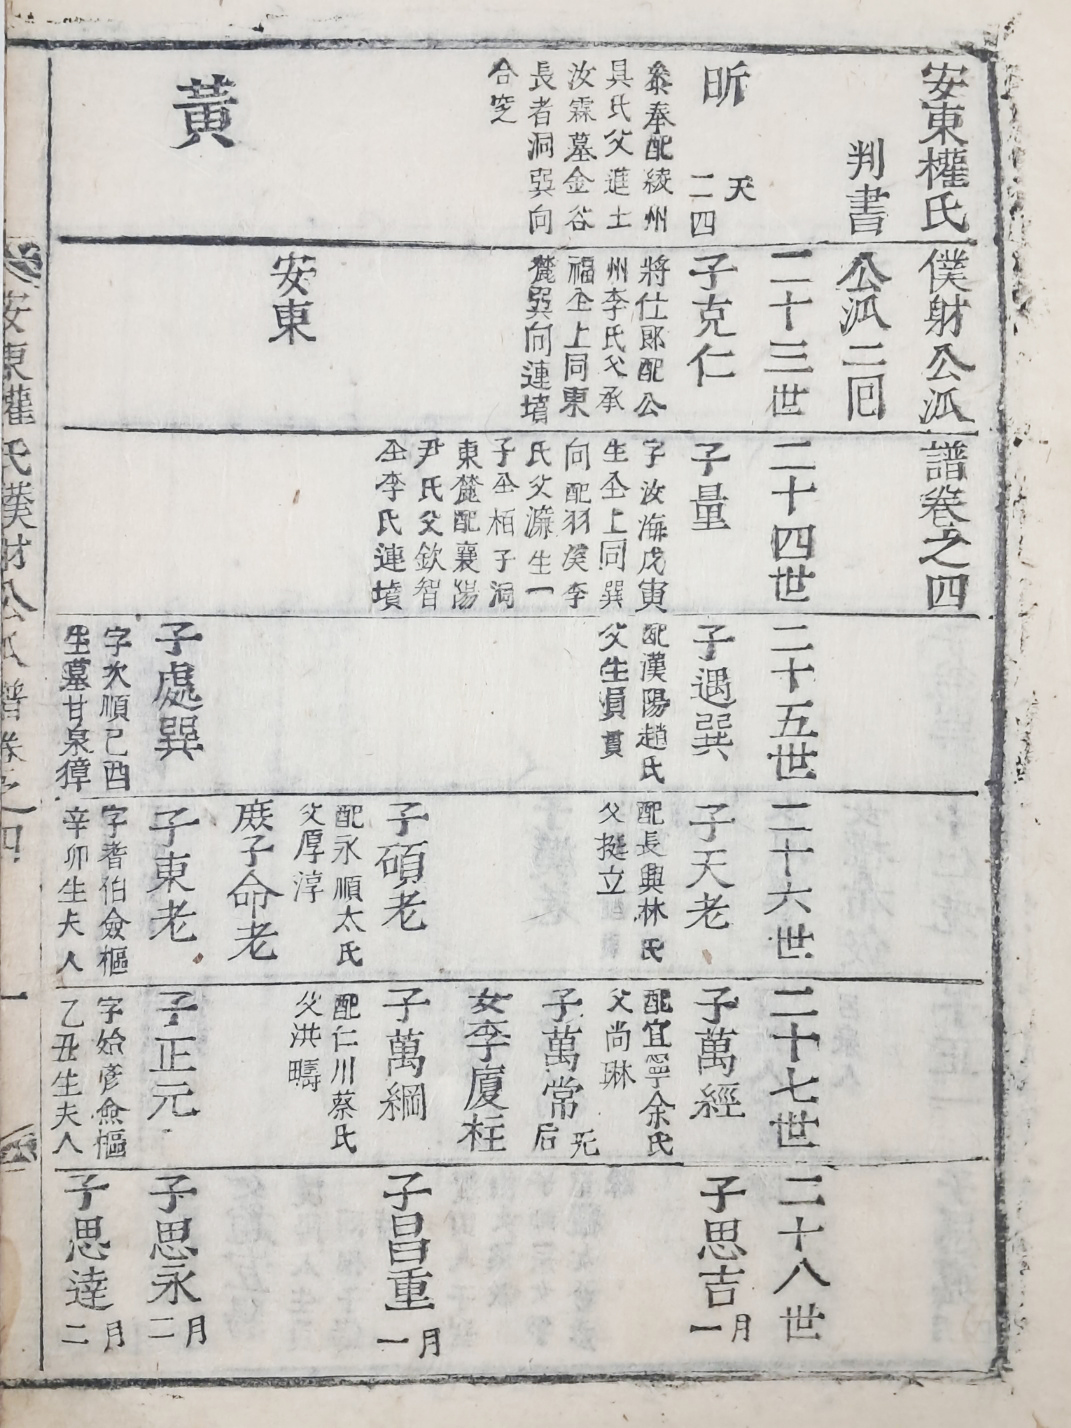 安東權氏僕射公派譜卷之四
判書公派二囘
昕
天
二四
奉配綾州
具氏父進士
汝霖墓金谷
長者洞巽向
合窆
黃
二十三世
子克仁
將仕郎配公
州李氏父承
福仝上同東
麓巽向連墳
安東
二十四世
子量
字汝海戊寅
生仝上同巽
向配羽溪李
氏父濂生一
子仝栢子洞
東麓配襄陽
尹氏父欽智
仝李氏連墳
二十五世
子遇巽
配漢陽趙氏
父生員貫
子處巽
字次順己酉
生墓甘泉獐
二十六世
子天老
配長興林氏
父挺立
子碩老
配永順太氏
父厚淳
庶子命老
子東老
字耆伯僉樞
辛卯生夫人
二十七世
子萬經
配宜寧余氏
父尚琳
子萬常
无
后
女李廈柱
子萬綱
配仁川蔡氏
父洪疇
子正元
字始彦僉樞
乙丑生夫人
二十八世
子思吉
月
一
子昌重
月
一
子思永
月
二
子思達
月
二
安東權氏僕射公派譜卷之四
一